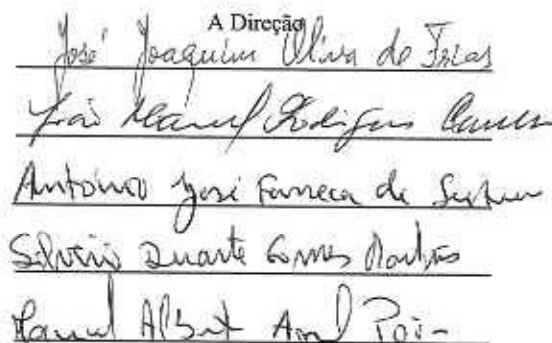 A Direção
José Joaquim Oliva de Frias
João Manuel Rodrigues
António José Fonseca de
Silvério Duarte Gomes Martins
Manuel Albert